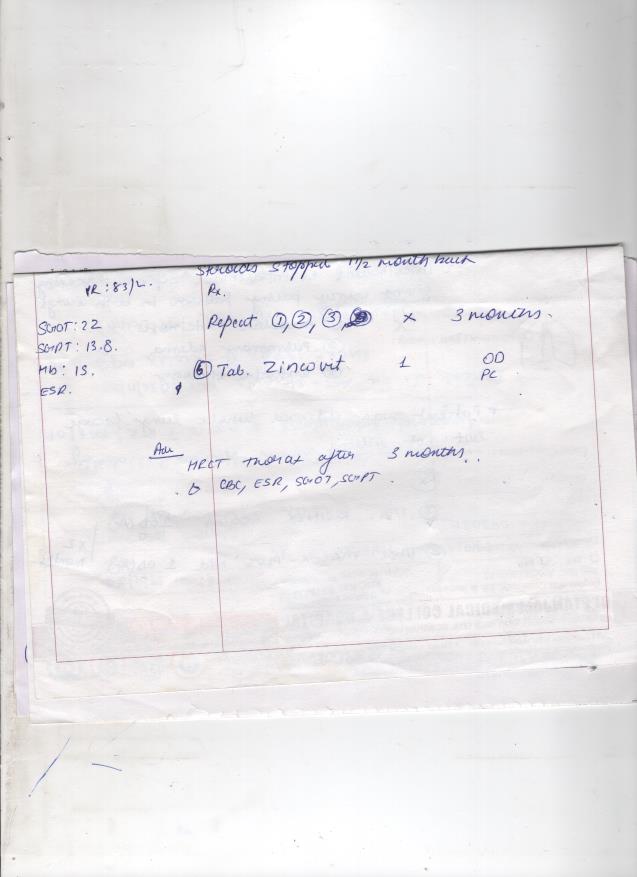 Steroids stopped 1 1/2 month back
PR: 83/2.
Rx.
SGOT: 22
Repeat ①, ②, ③, × 3 months.
SGPT: 13.8.
Hb: 13.
⑥ Tab. Zincovit 1 OD
PC
ESR.
Adv
HRCT thorax after 3 months..
CBC, ESR, SGOT, SGPT.